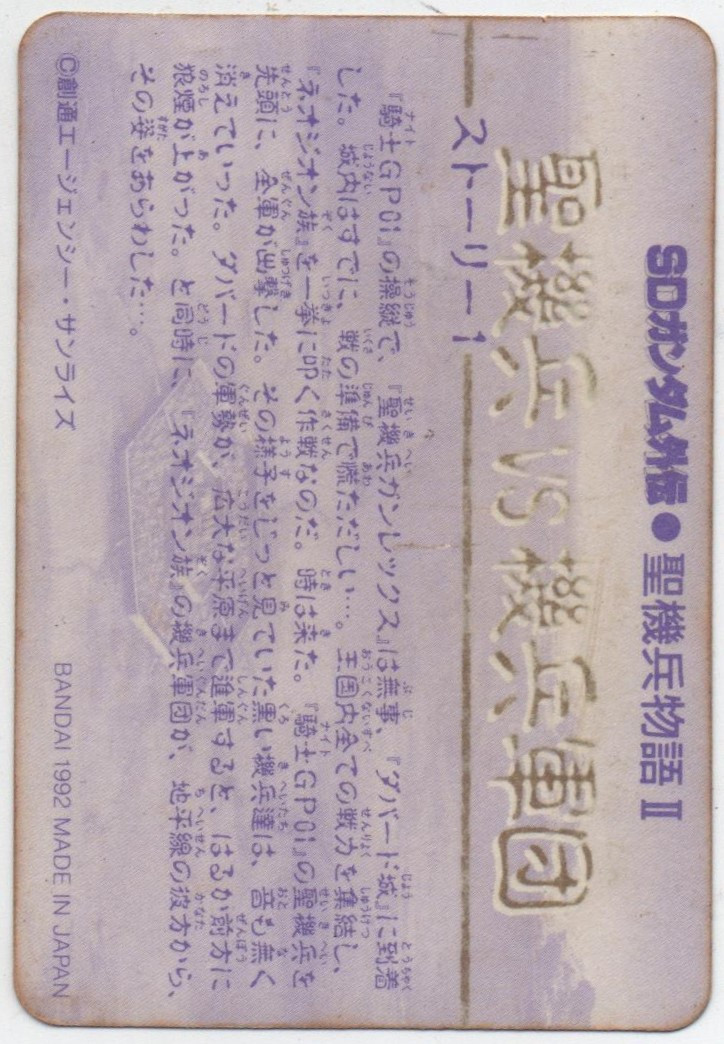 SDガンダム外伝●聖機兵物語Ⅱ
聖機兵VS機兵軍団
ストーリー1
『騎士GP01』の操縦で、『聖機兵ガンレックス』は無事、『ダバード城』に到着
した。城内はすでに、戦の準備で慌ただしい…。王国内全ての戦力を集結し、
『ネオジオン族』を一挙に叩く作戦なのだ。時は来た。『騎士GP01』の聖機兵を
先頭に、全軍が出撃した。その様子をじっと見ていた黒い機兵達は、音も無く
消えていった。ダバードの軍勢が、広大な平原まで進軍すると、はるか前方に
狼煙が上がった。と同時に、『ネオジオン族』の機兵軍団が、地平線の彼方から、
その姿をあらわした…。
©創通エージェンシー・サンライズ
BANDAI 1992 MADE IN JAPAN